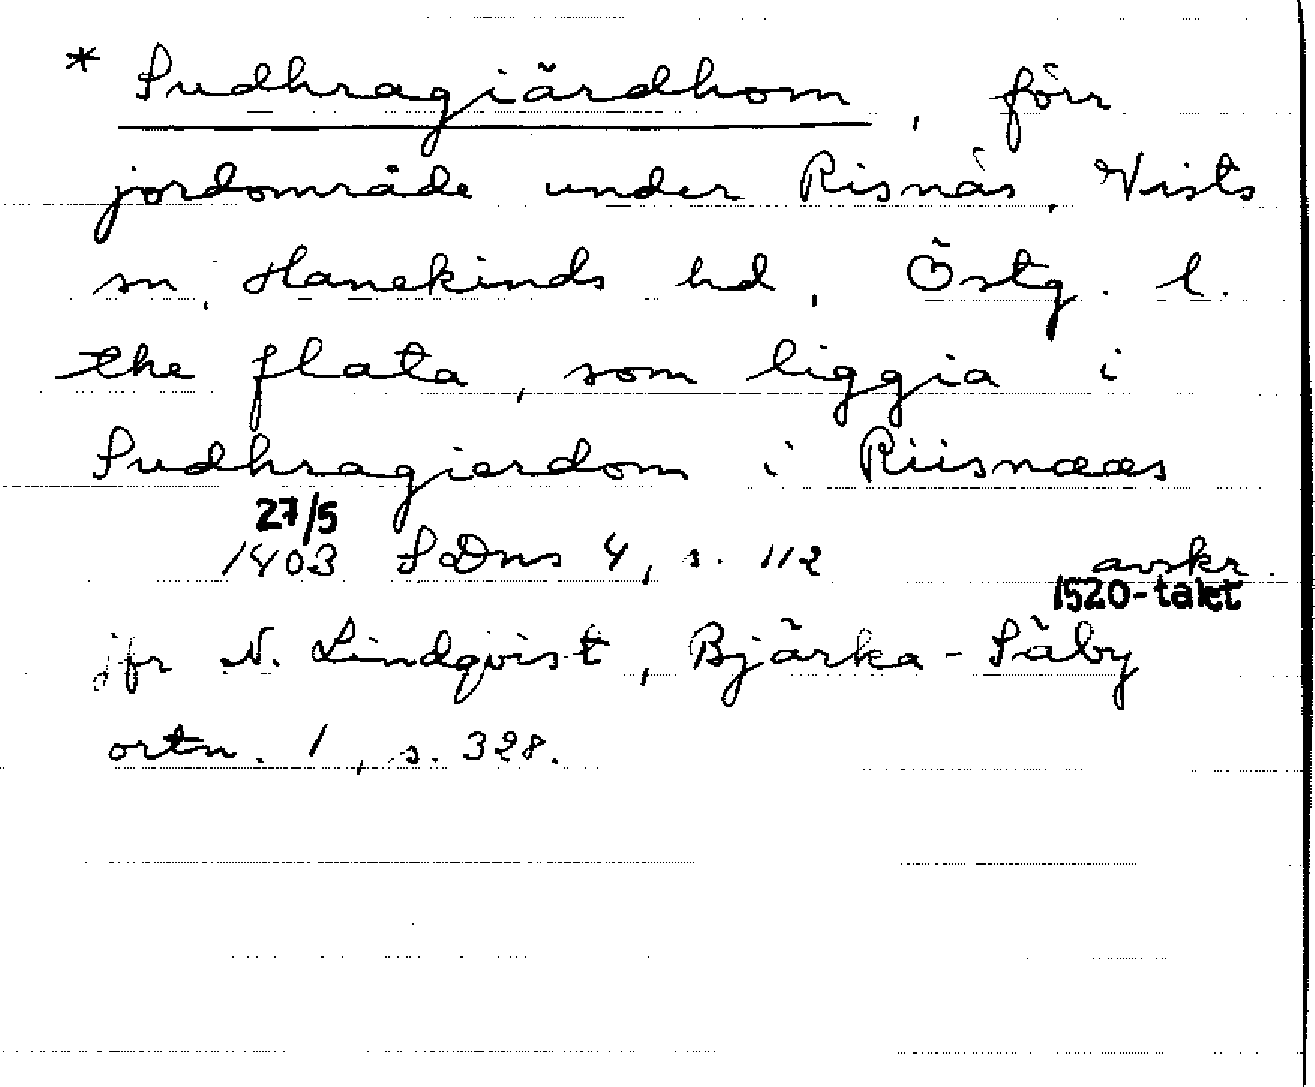 * Sudhragiärdhom, förr
jordområde under Risnäs, Vists
sn, Hanekinds hd, Östg. l.
the flata, som liggia i
Sudhragierdom i Riisnææs
27/5
1403 SDns 4, s. 112 avskr.
1520-talet
jfr N. Lindqvist, Bjärka-Säby
ortn. 1, s. 328.